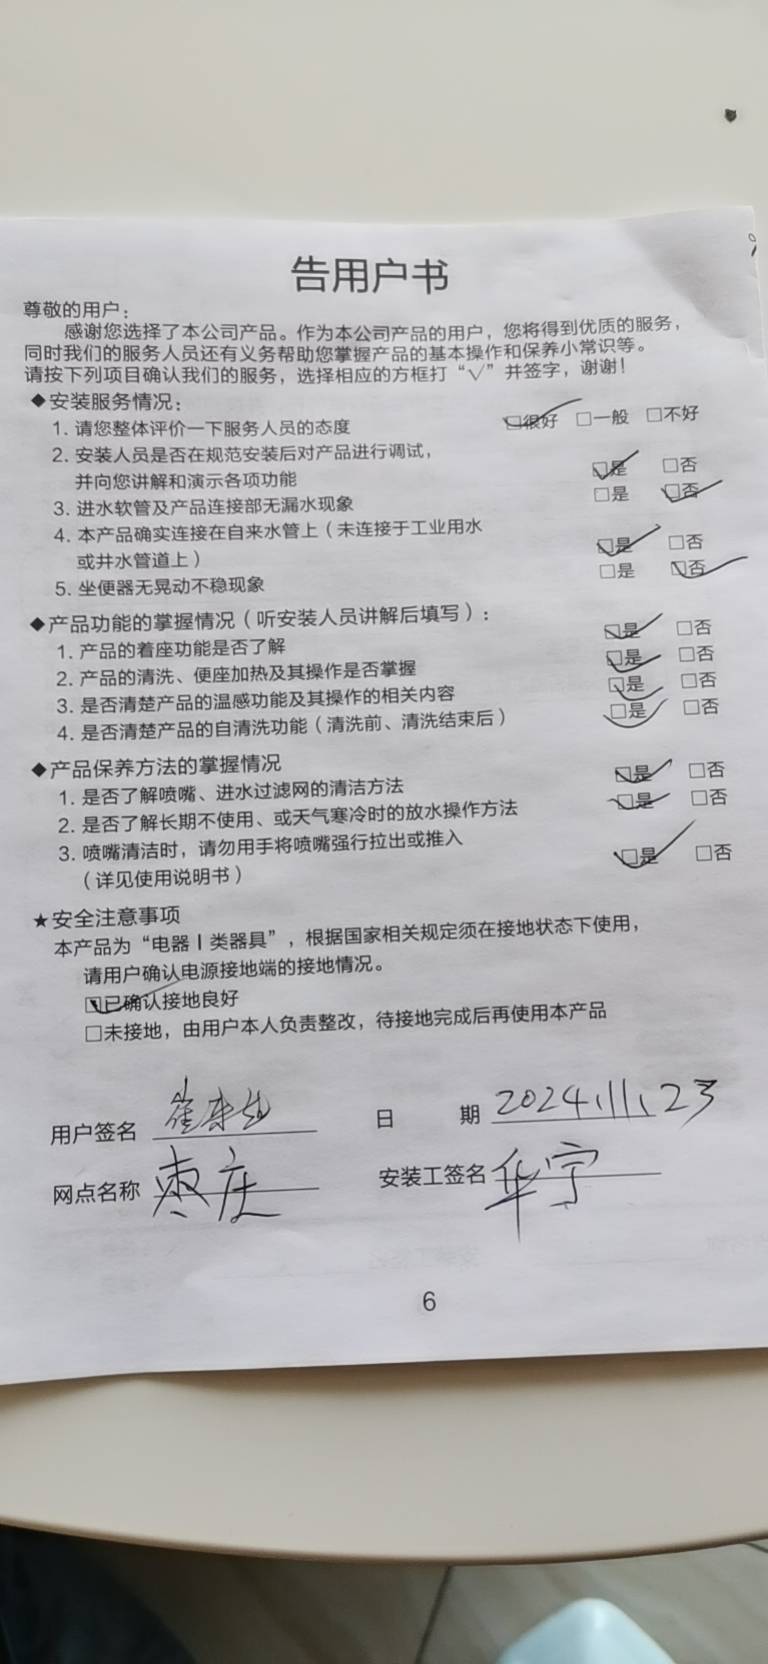 告用户书
尊敬的用户：
感谢您选择了本公司产品。作为本公司产品的用户，您将得到优质的服务，
同时我们的服务人员还有义务帮助您掌握产品的基本操作和保养小常识等。
请按下列项目确认我们的服务，选择相应的方框打“√”并签字，谢谢！
◆安装服务情况：
1. 请您整体评价一下服务人员的态度 ☑很好 □一般 □不好
2. 安装人员是否在规范安装后对产品进行调试，
并向您讲解和演示各项功能 ☑是 □否
3. 进水软管及产品连接部无漏水现象 □是 ☑否
4. 本产品确实连接在自来水管上（未连接于工业用水
或井水管道上） ☑是 □否
5. 坐便器无晃动不稳现象 □是 ☑否
◆产品功能的掌握情况（听安装人员讲解后填写）：
1. 产品的着座功能是否了解 ☑是 □否
2. 产品的清洗、便座加热及其操作是否掌握 ☑是 □否
3. 是否清楚产品的温感功能及其操作的相关内容 ☑是 □否
4. 是否清楚产品的自清洗功能（清洗前、清洗结束后） ☑是 □否
◆产品保养方法的掌握情况
1. 是否了解喷嘴、进水过滤网的清洁方法 ☑是 □否
2. 是否了解长期不使用、或天气寒冷时的放水操作方法 ☑是 □否
3. 喷嘴清洁时，请勿用手将喷嘴强行拉出或推入 ☑是 □否
（详见使用说明书）
★安全注意事项
本产品为“电器Ⅰ类器具”，根据国家相关规定须在接地状态下使用，
请用户确认电源接地端的接地情况。
☑已确认接地良好
□未接地，由用户本人负责整改，待接地完成后再使用本产品
用户签名 日 期 2024.11.23
网点名称 枣庄 安装工签名 华宁
6